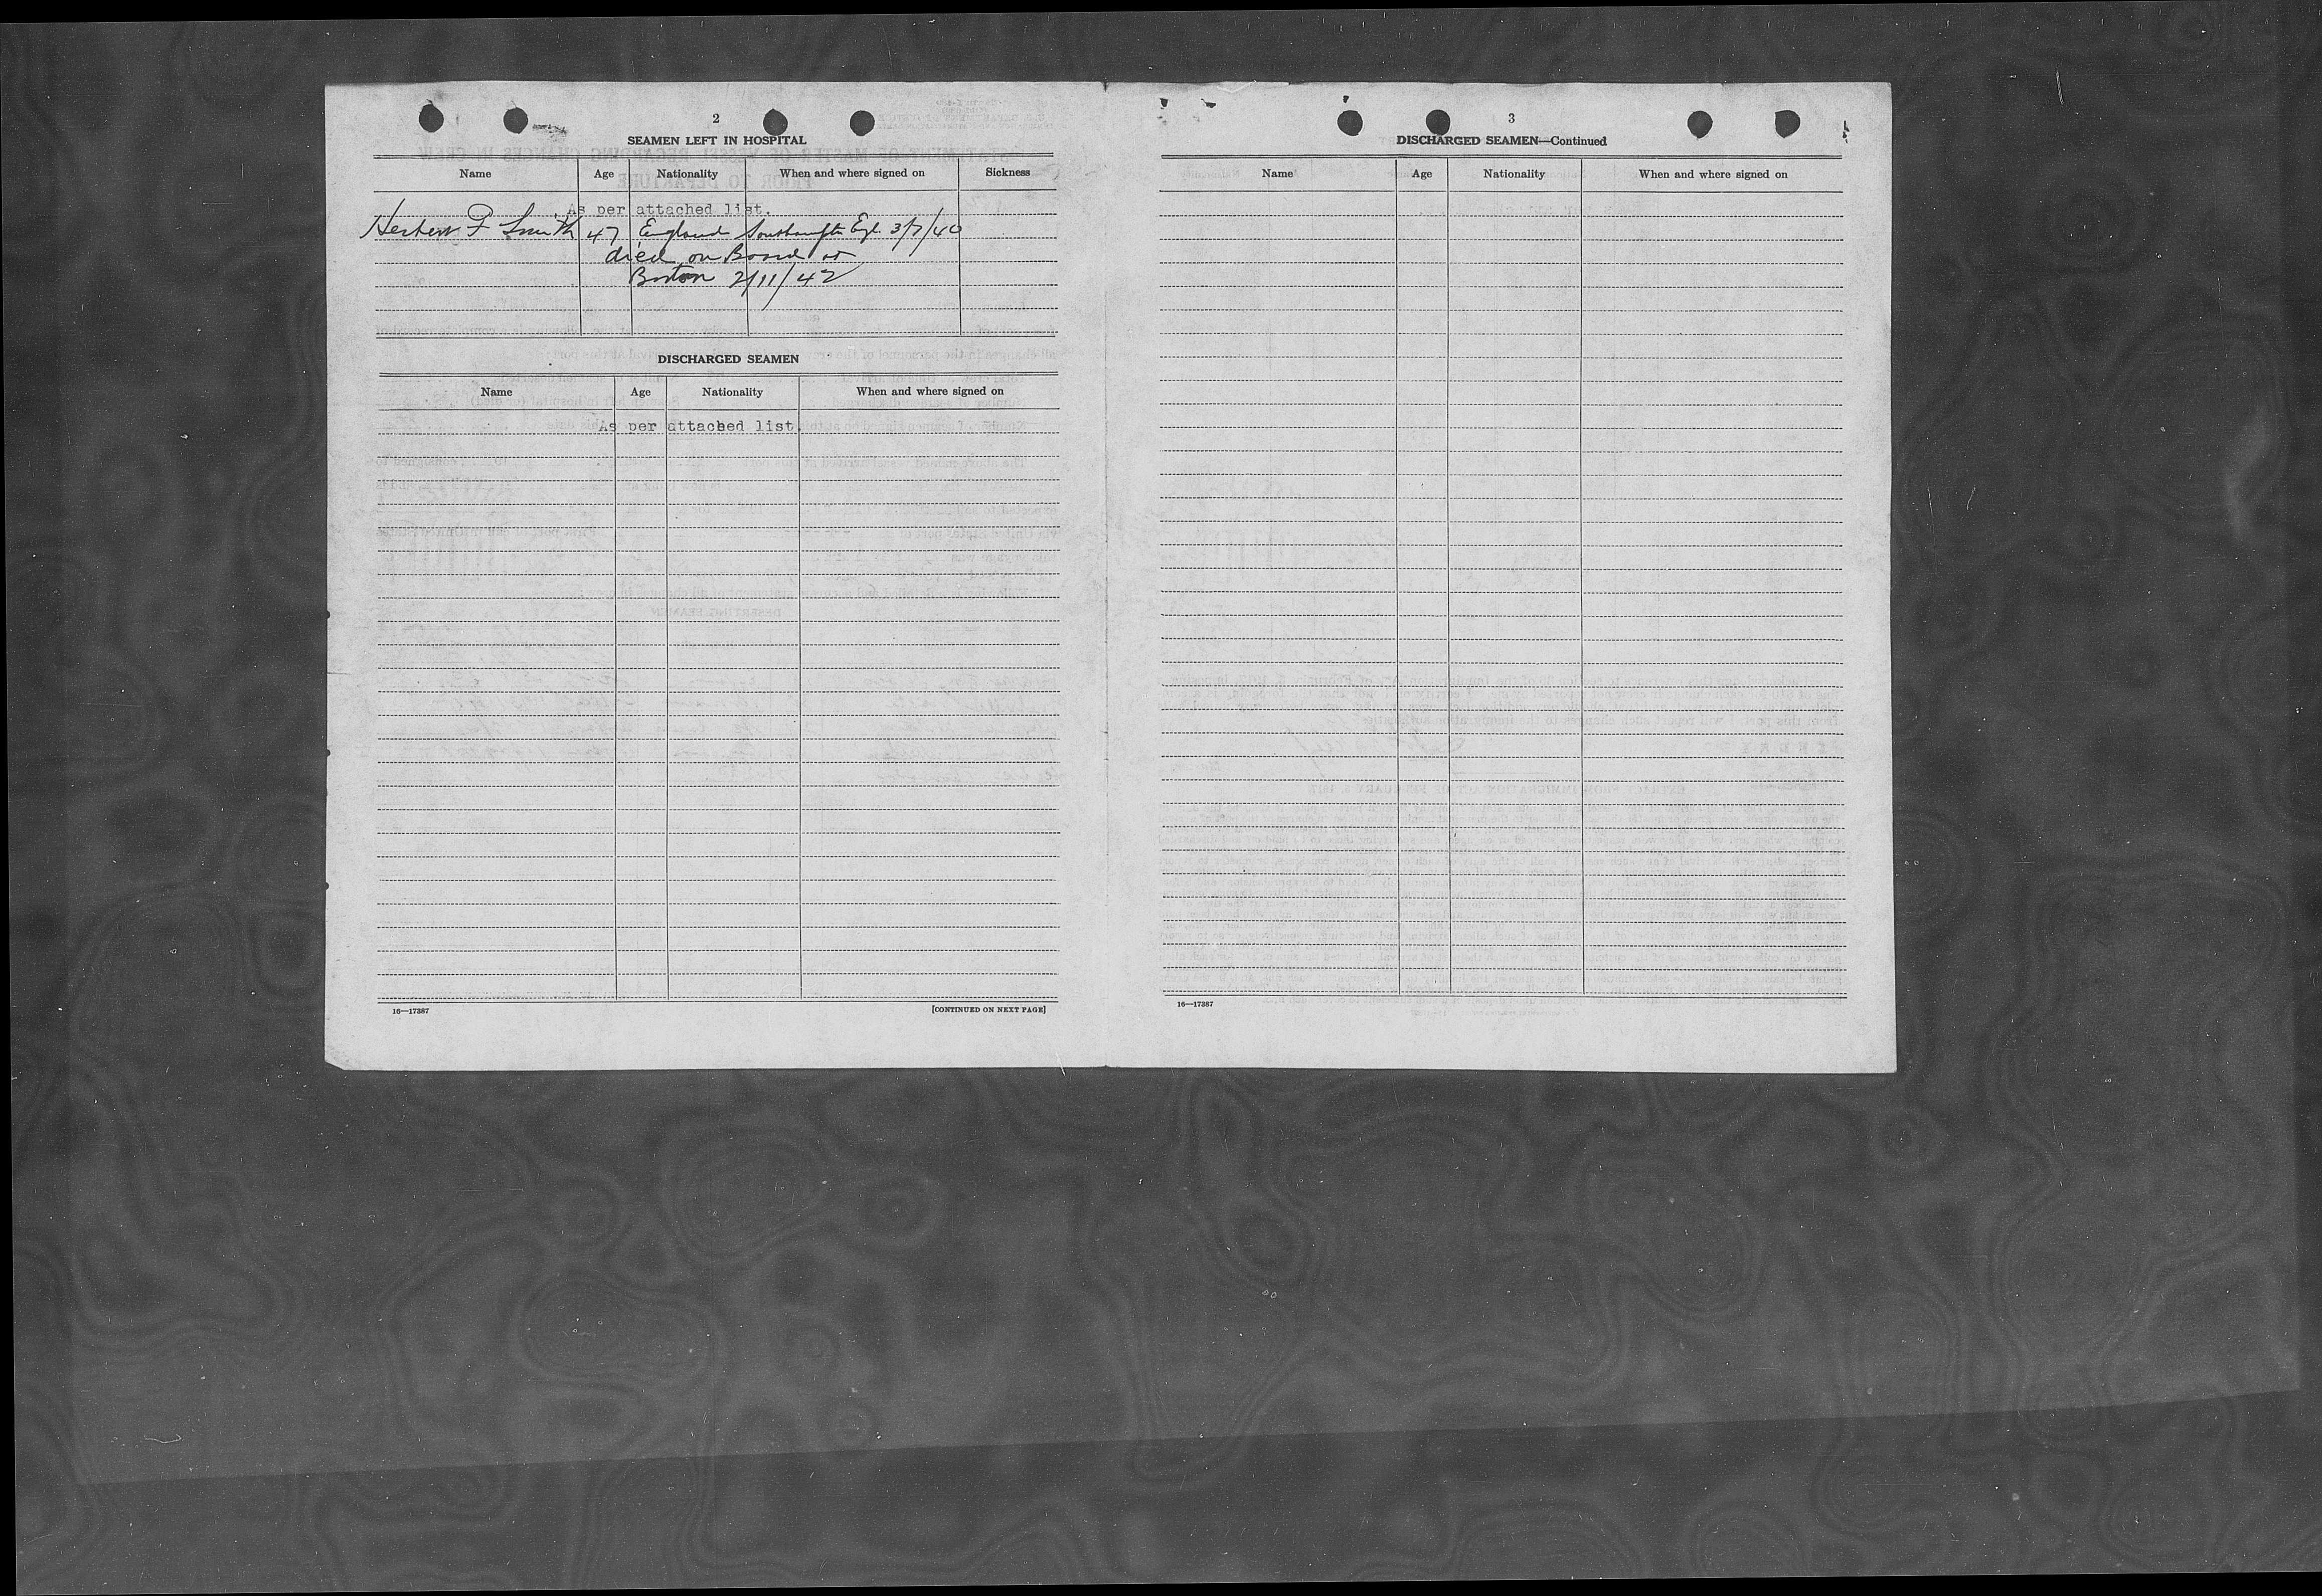 2
SEAMEN LEFT IN HOSPITAL
Name Age Nationality When and where signed on Sickness
As per attached list.
Herbert F Smith 47 England Southampton Egl 3/7/40
died on Board at
Boston 2/11/42
DISCHARGED SEAMEN
Name Age Nationality When and where signed on
As per attached list.
16—17387 [CONTINUED ON NEXT PAGE]
3
DISCHARGED SEAMEN—Continued
Name Age Nationality When and where signed on
16—17387